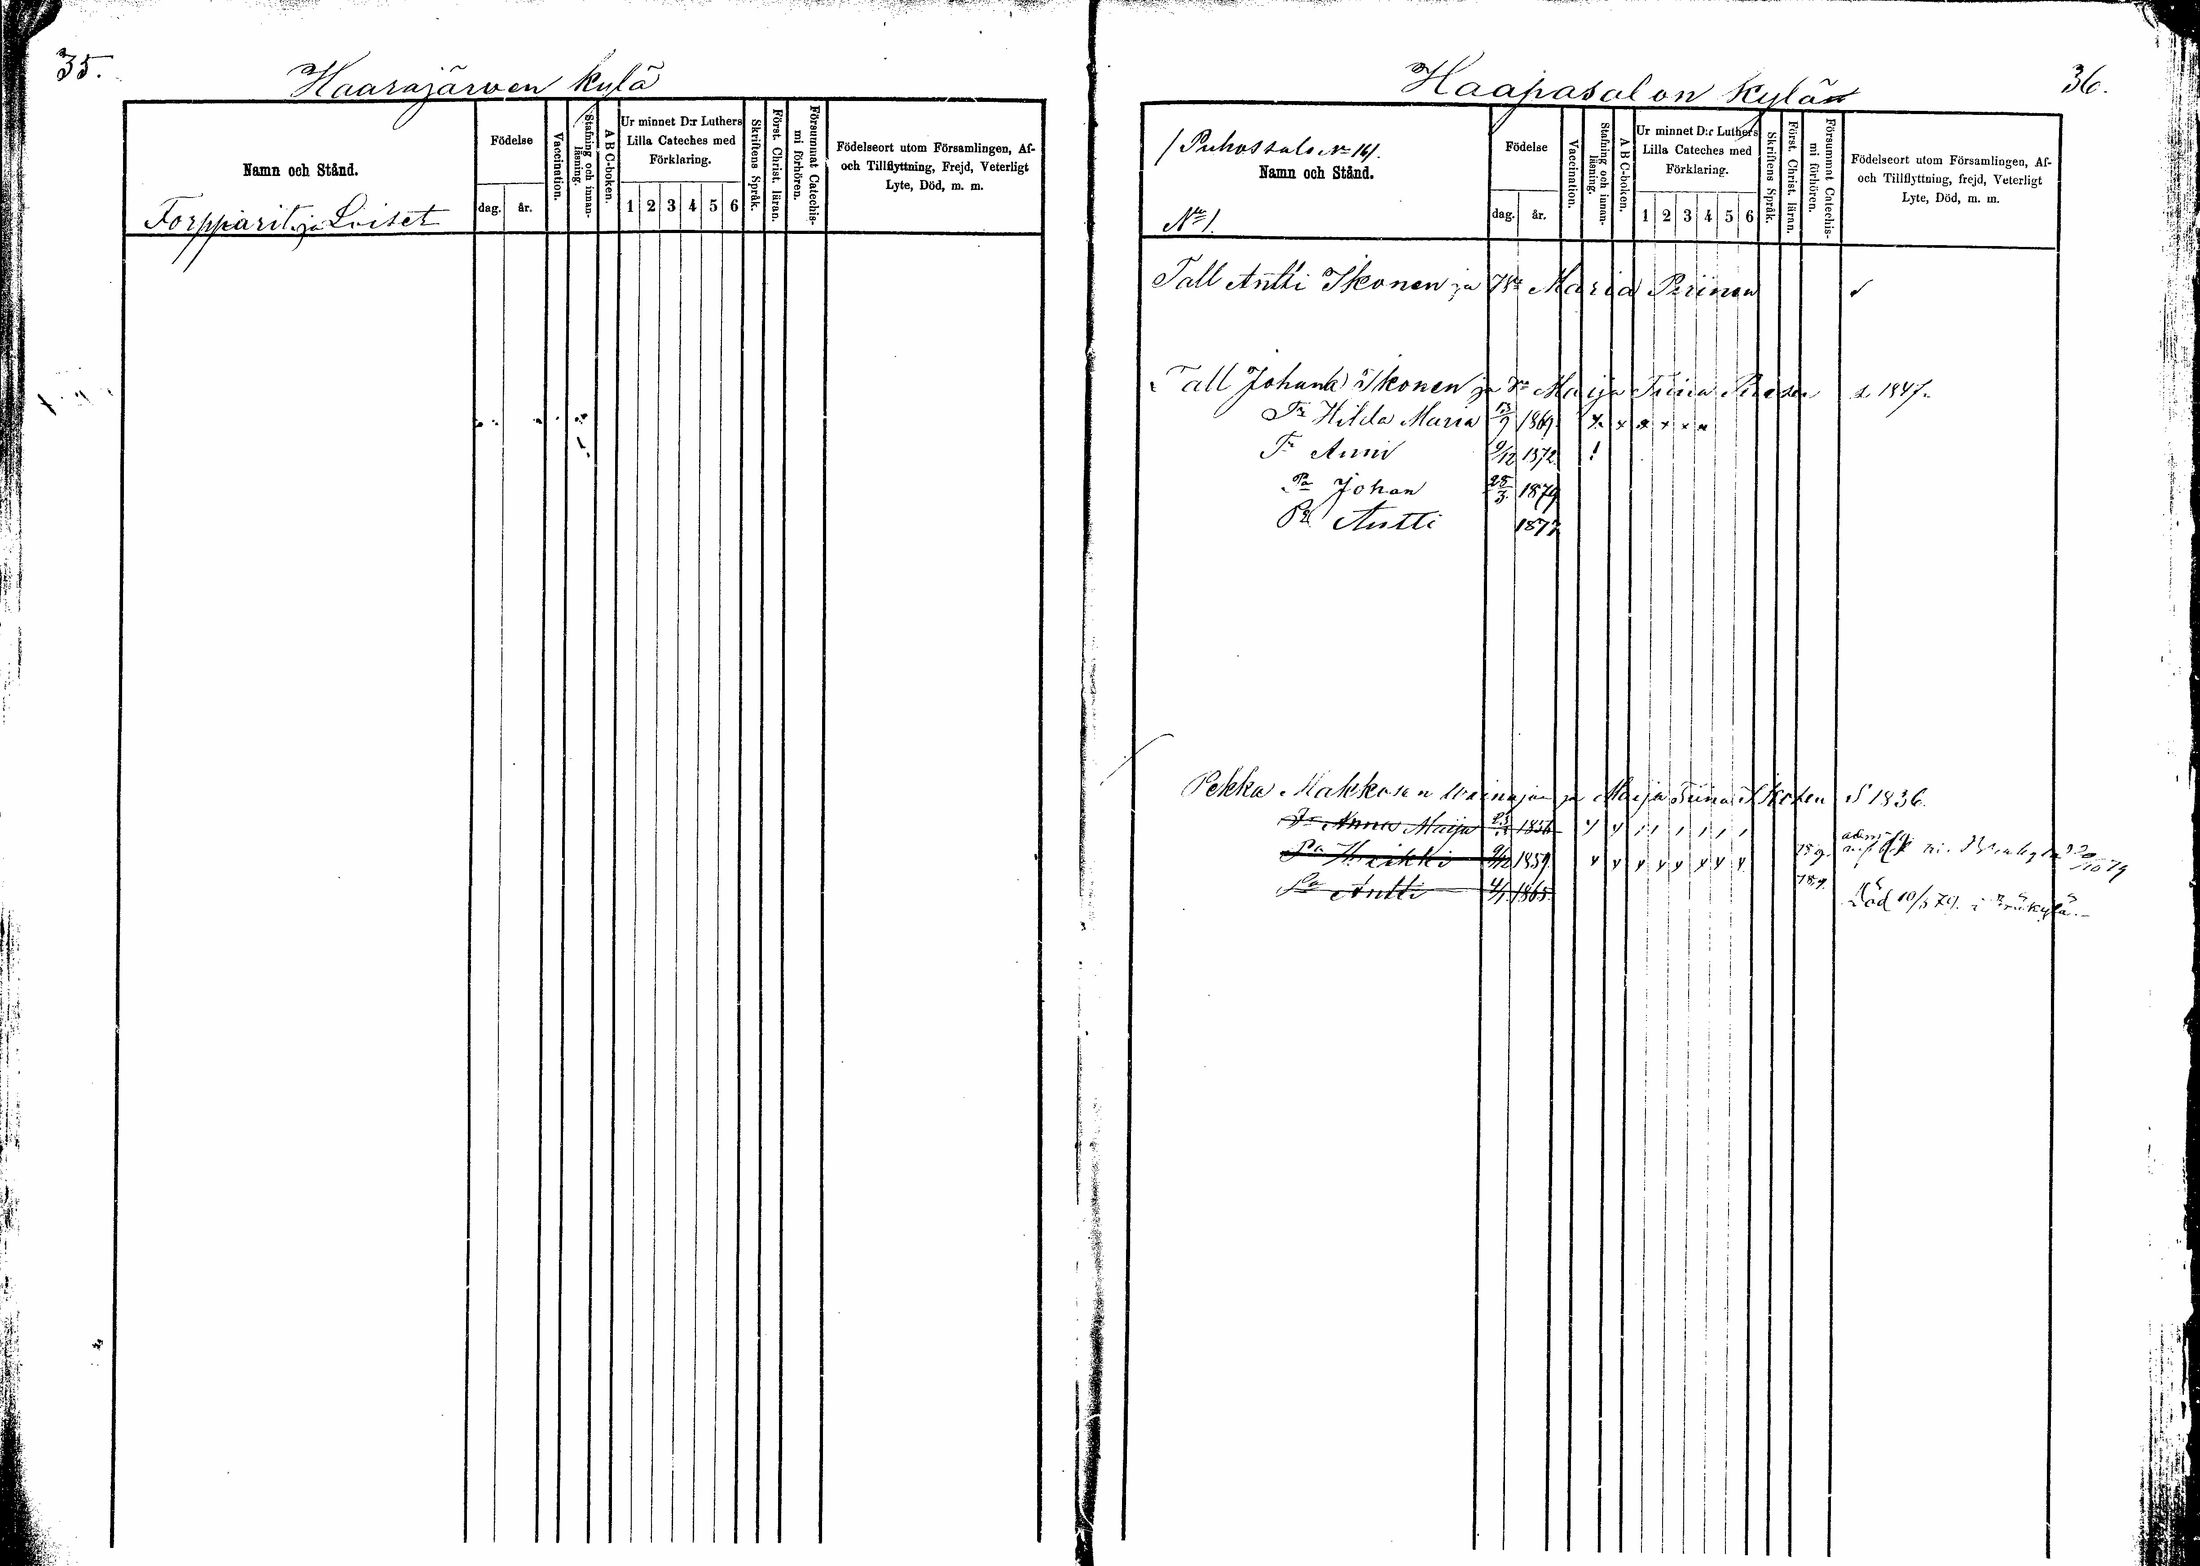 35.
Haarajärwen kylä
Namn och Stånd.
Torpparit ja Loiset
Födelse
dag. år.
Vaccination.
Stafning och innan-
läsning.
A B C-boken.
Ur minnet D:r Luthers
Lilla Cateches med
Förklaring.
1 2 3 4 5 6
Skriftens Språk.
Förest. Christ. läran.
Försummat Catechis-
mi förhören.
Födelseort utom Församlingen, Af-
och Tillflyttning, Frejd, Veterligt
Lyte, Död, m. m.
36.
Haapasalon Kylä
/ Puhossalo No 161.
Namn och Stånd.
No 1.
Födelse
dag. år.
Vaccination.
Stafning och innan-
läsning.
A B C-boken.
Ur minnet D:r Luthers
Lilla Cateches med
Förklaring.
1 2 3 4 5 6
Skriftens Språk.
Förest. Christ. läran.
Försummat Catechis-
mi förhören.
Födelseort utom Församlingen, Af-
och Tillflyttning, frejd, Veterligt
Lyte, Död, m. m.
Tall Antti Ikonen ja Maria Pirinen
Tall Johan Ikonen ja Maija Tiina s 1847.
Tr Hilda Maria 13/9 1869. x x x x x x
Tr Anni 9/12 1872. !
Pa Johan 28/3 1879
Pa Antti 1877
Pekka Makkosen wainajan ja Maija Tiina Ikonen S 1836.
Tr Anna Maija 1856
Pa Heikki 9/12 1859
Pa Antti 4/1 1865. Död 10/3 79. i